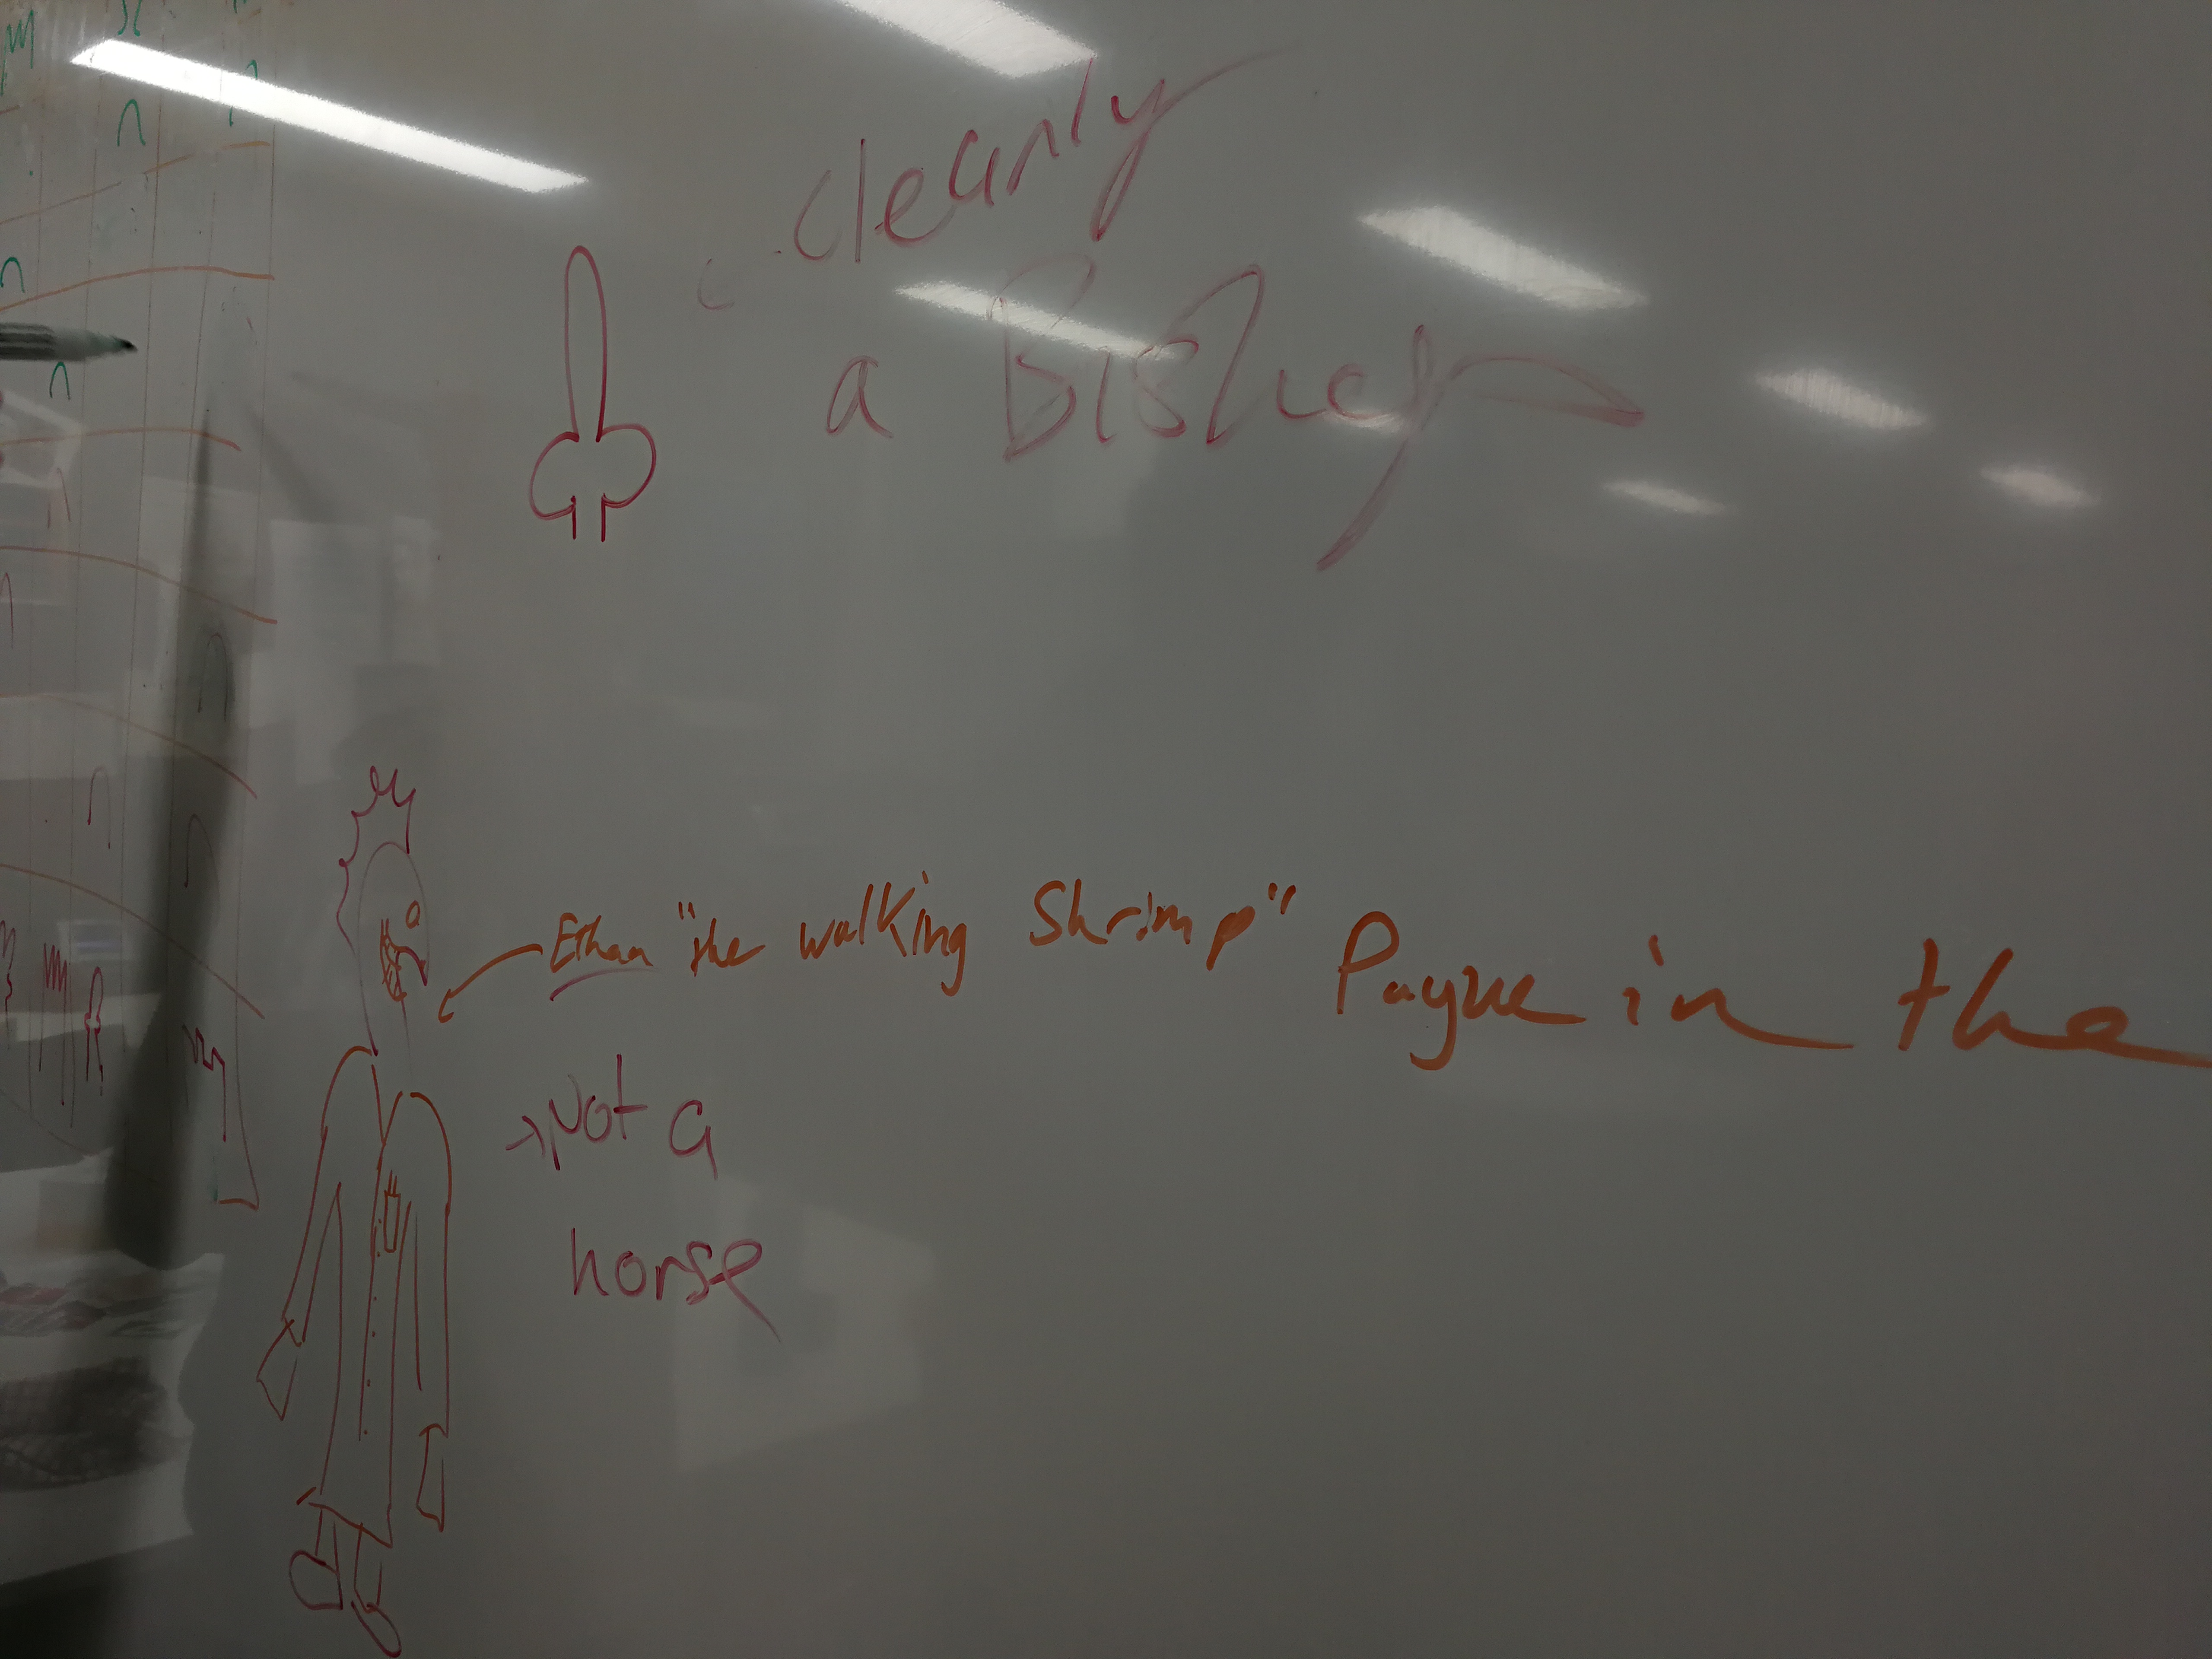 clearly
a Bishop
Ethan "the walking Shrimp" Payne in the
Not a
horse